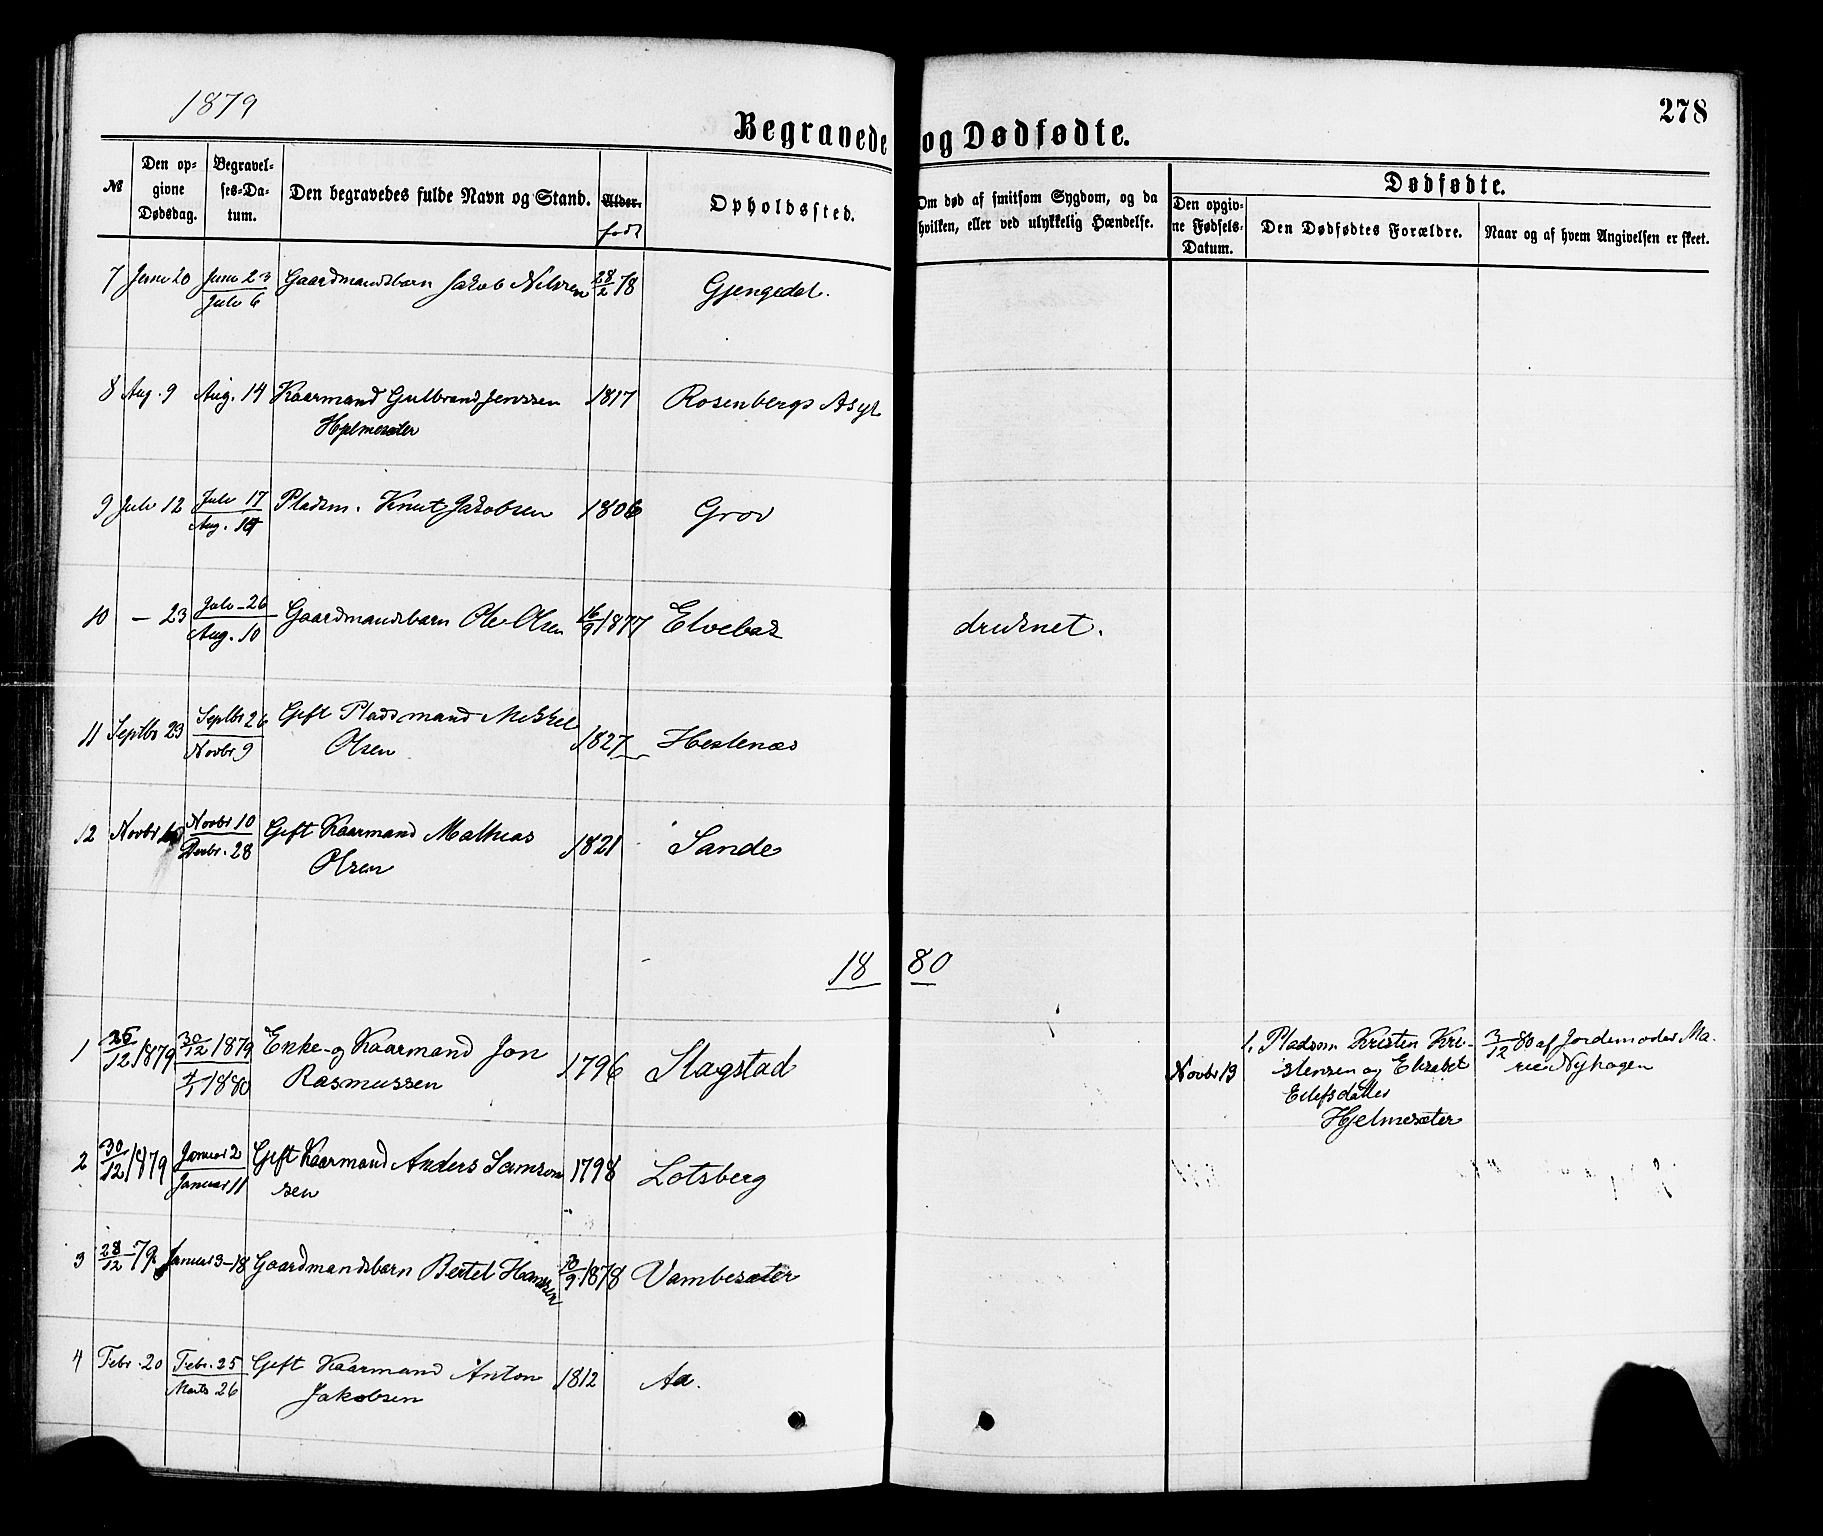 1879
278
Begravede og Dødfødte.
№
Den op-
givne
Dødsdag.
Begravel-
ses-Da-
tum.
Den begravedes fulde Navn og Stand.
Alder.
født
Opholdssted.
Om død af smitsom Sygdom, og da
hvilken, eller ved ulykkelig Hændelse.
Dødfødte.
Den opgiv-
ne Fødsels-
Datum.
Den Dødfødtes Forældre.
Naar og af hvem Angivelsen er skeet.
7 Juni 20 Juni 23 Gaardmandsbarn Jakob Nilssen 28/2 78 Gjengedal.
Juli 6
8 Aug. 9 Aug. 14 Kaarmand Gulbrand Jenssen 1817 Rosenbergs Asyl
Hjelmesæter
9 Juli 12 Juli 17 Pladsm. Knut Jakobsen 1806 Grov
Aug. 14
10 - 23 Juli 26 Gaardmandsbarn Ole Olsen 16/9 1877 Elvebak druknet.
Aug. 10
11 Septbr 23 Septbr 26 Gift Pladsmand Mikkel
Novbr 9 Olsen 1827 Hestenæs
12 Novbr Novbr 10 Gift Kaarmand Mathias
Decbr. 28 Olsen 1821 Sande
1880
1 26/12 1879 30/12 1879 Enke- og Kaarmand Jon
4/1 1880 Rasmussen 1796 Slagstad
Novbr 13 1. Pladsm Kristen Kri-
stensen og Elisabet
Eilefsdatter
Hjelmesæter
3/12 80 af Jordemoder Ma-
rie Nyhagen
2 30/12 1879 Januar 2 Gift Kaarmand Anders Samson 1798 Lotsberg
Januar 11 sen
3 28/12 79 Januar 3-18 Gaardmandsbarn Bertel Hanssen 30/9 1878 Vambesæter
4 Febr. 20 Febr. 25 Gift Kaarmand Anton 1812 Aa.
Marts 26 Jakobsen